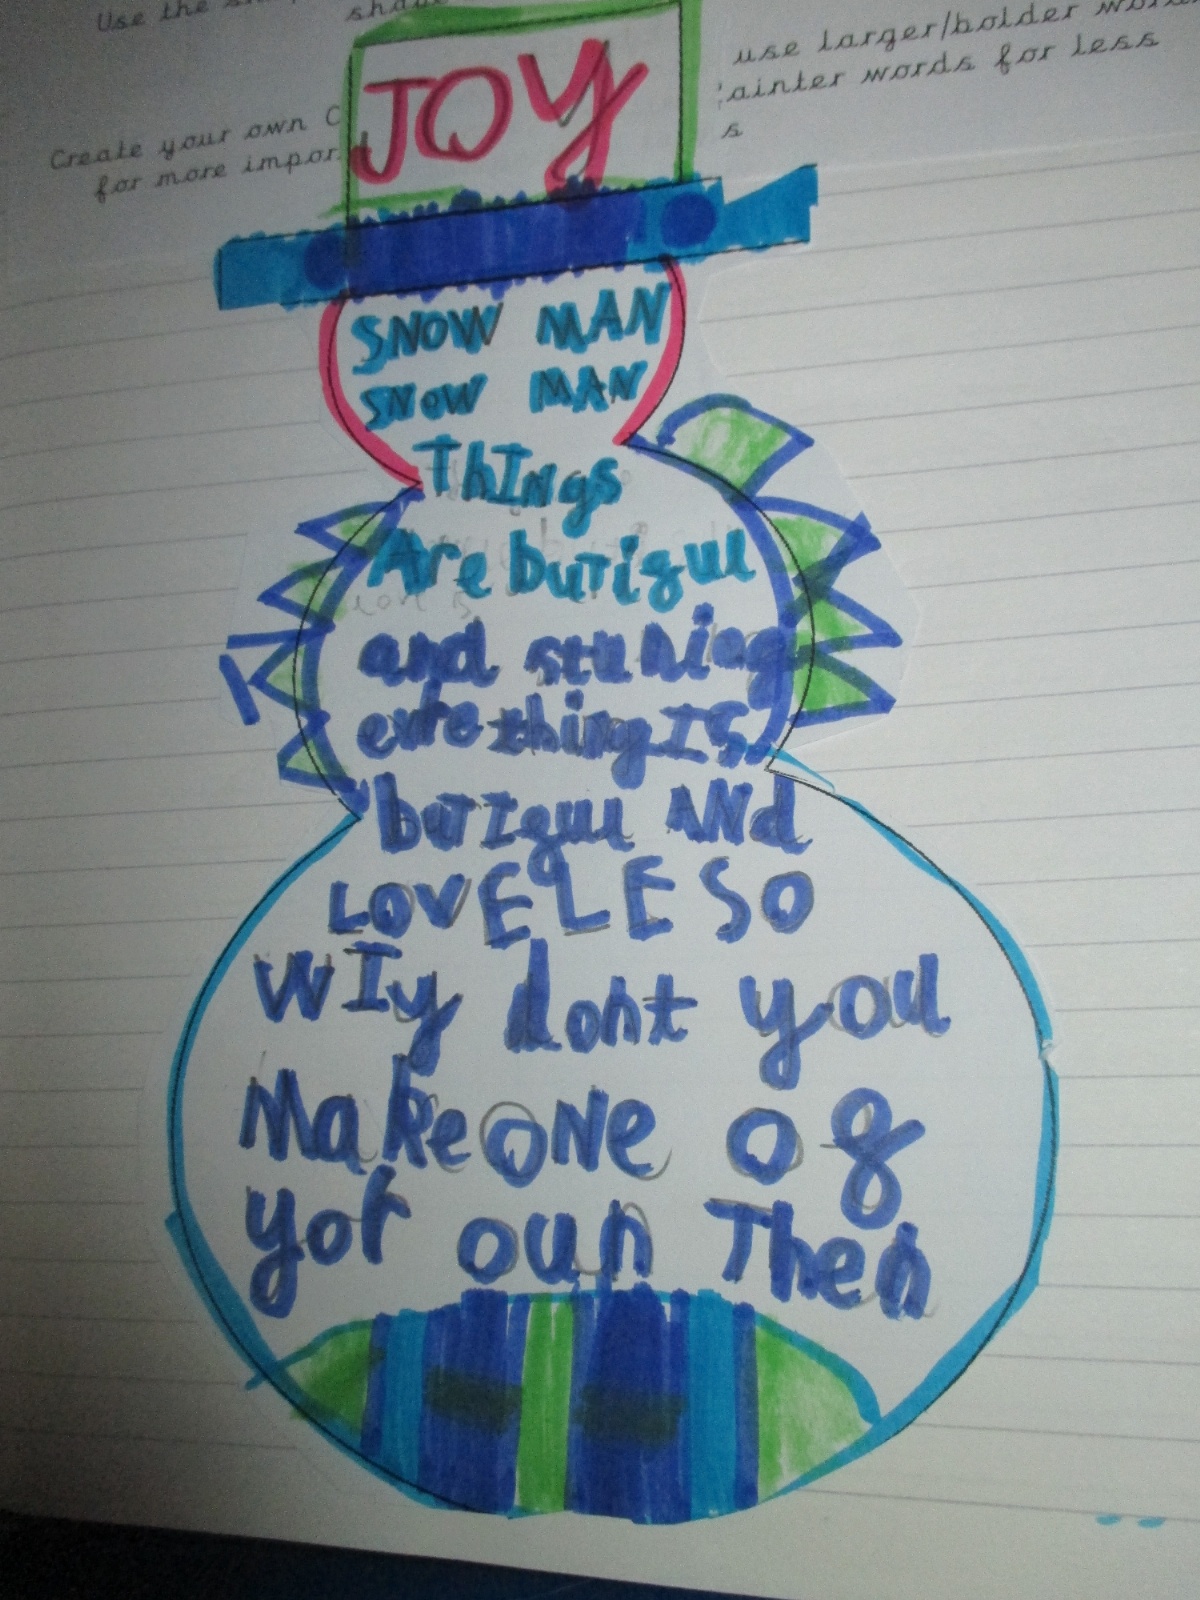 Use the
Create your own C
for more impor
use larger/bolder
ainter words for less
s
JOY
SNOW MAN
SNOW MAN
ThINgs
Are butigul
and stuning
evrething IS
butigul ANd
LOVELE SO
WIy dont you
Make one of
yor oun Then